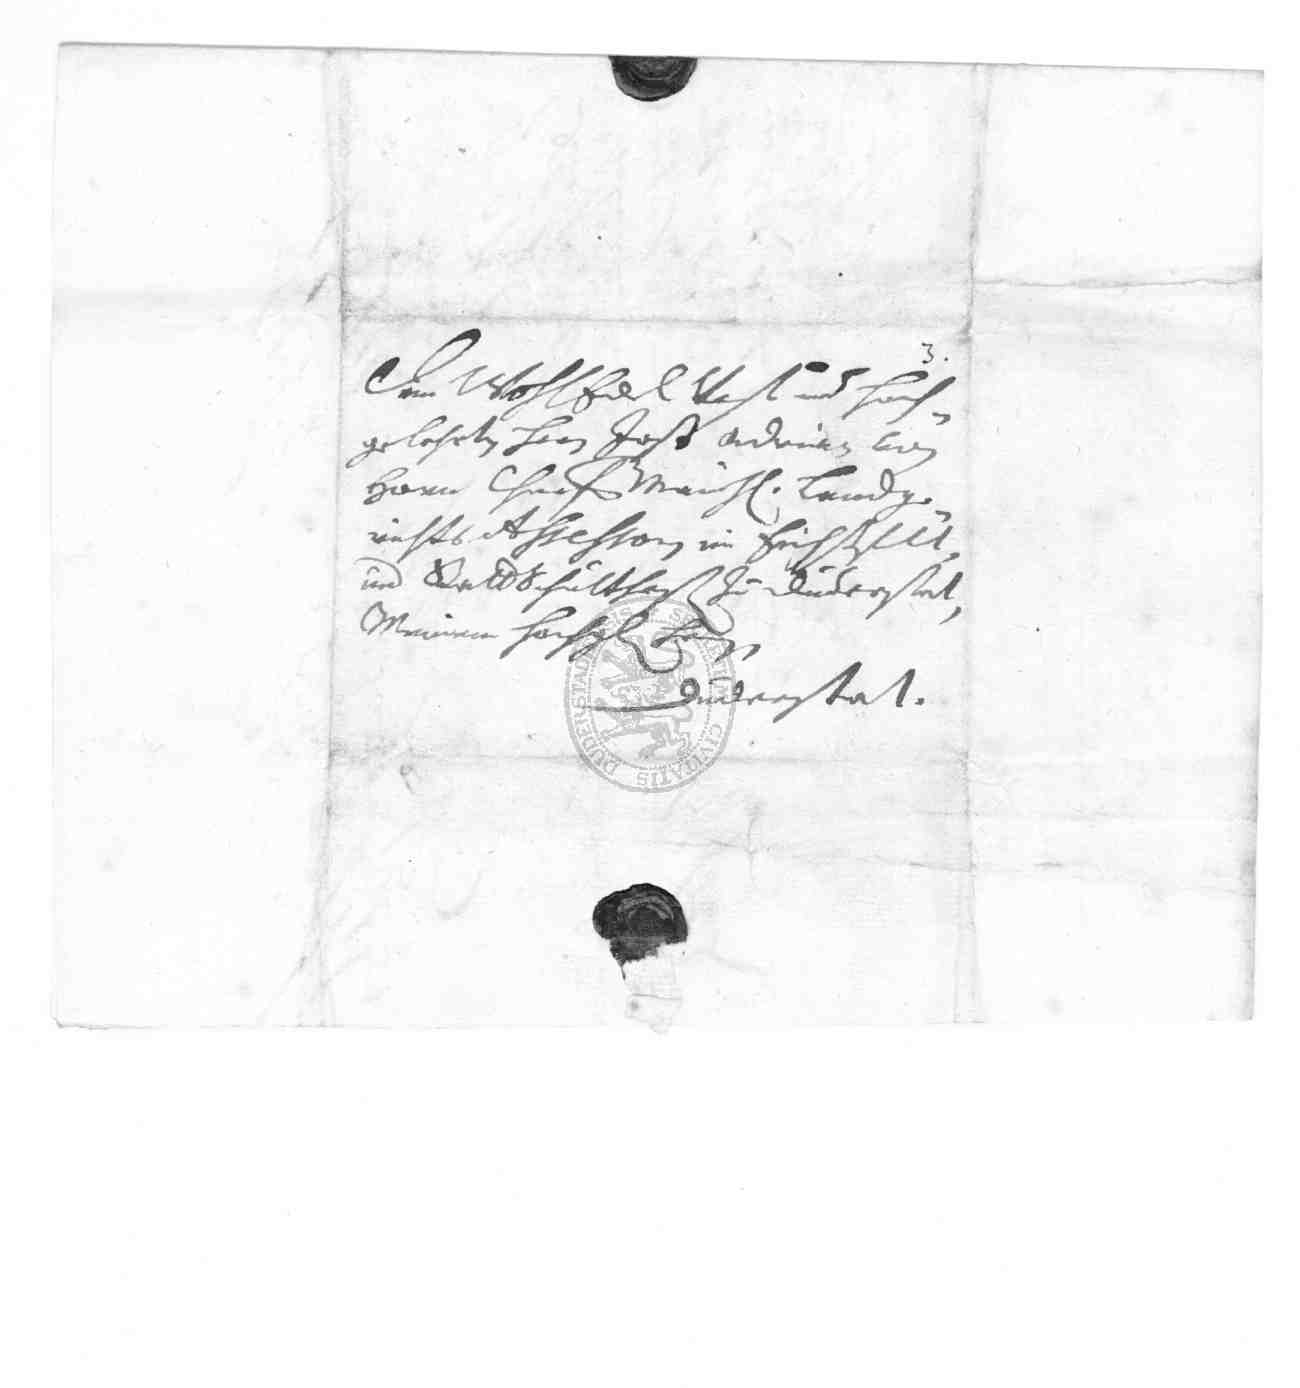 3.
Dem WohlEdel Vest und Hoch-
gelehrten Herrn Jost Adrian von
Horn Churf Maintz. Landg-
richts Assessorn im Eichsfeldt,
und StadtSchultheß zu Duderstat,
Meinem Hochgl Herrn
Duderstat.
SIGILLUM CIVITATIS DUDERSTADENSIS